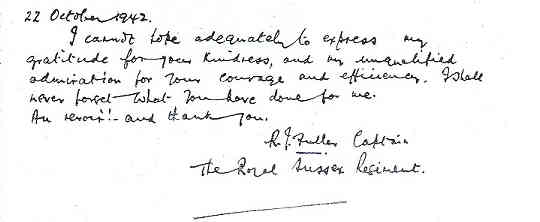 22 October 1942.
I cannot hope adequately to express my
gratitude for your kindness, and my unqualified
admiration for your courage and efficiency. I shall
never forget what you have done for me.
Au revoir! - and thank you.
R.J. Fuller Captain
The Royal Sussex Regiment.